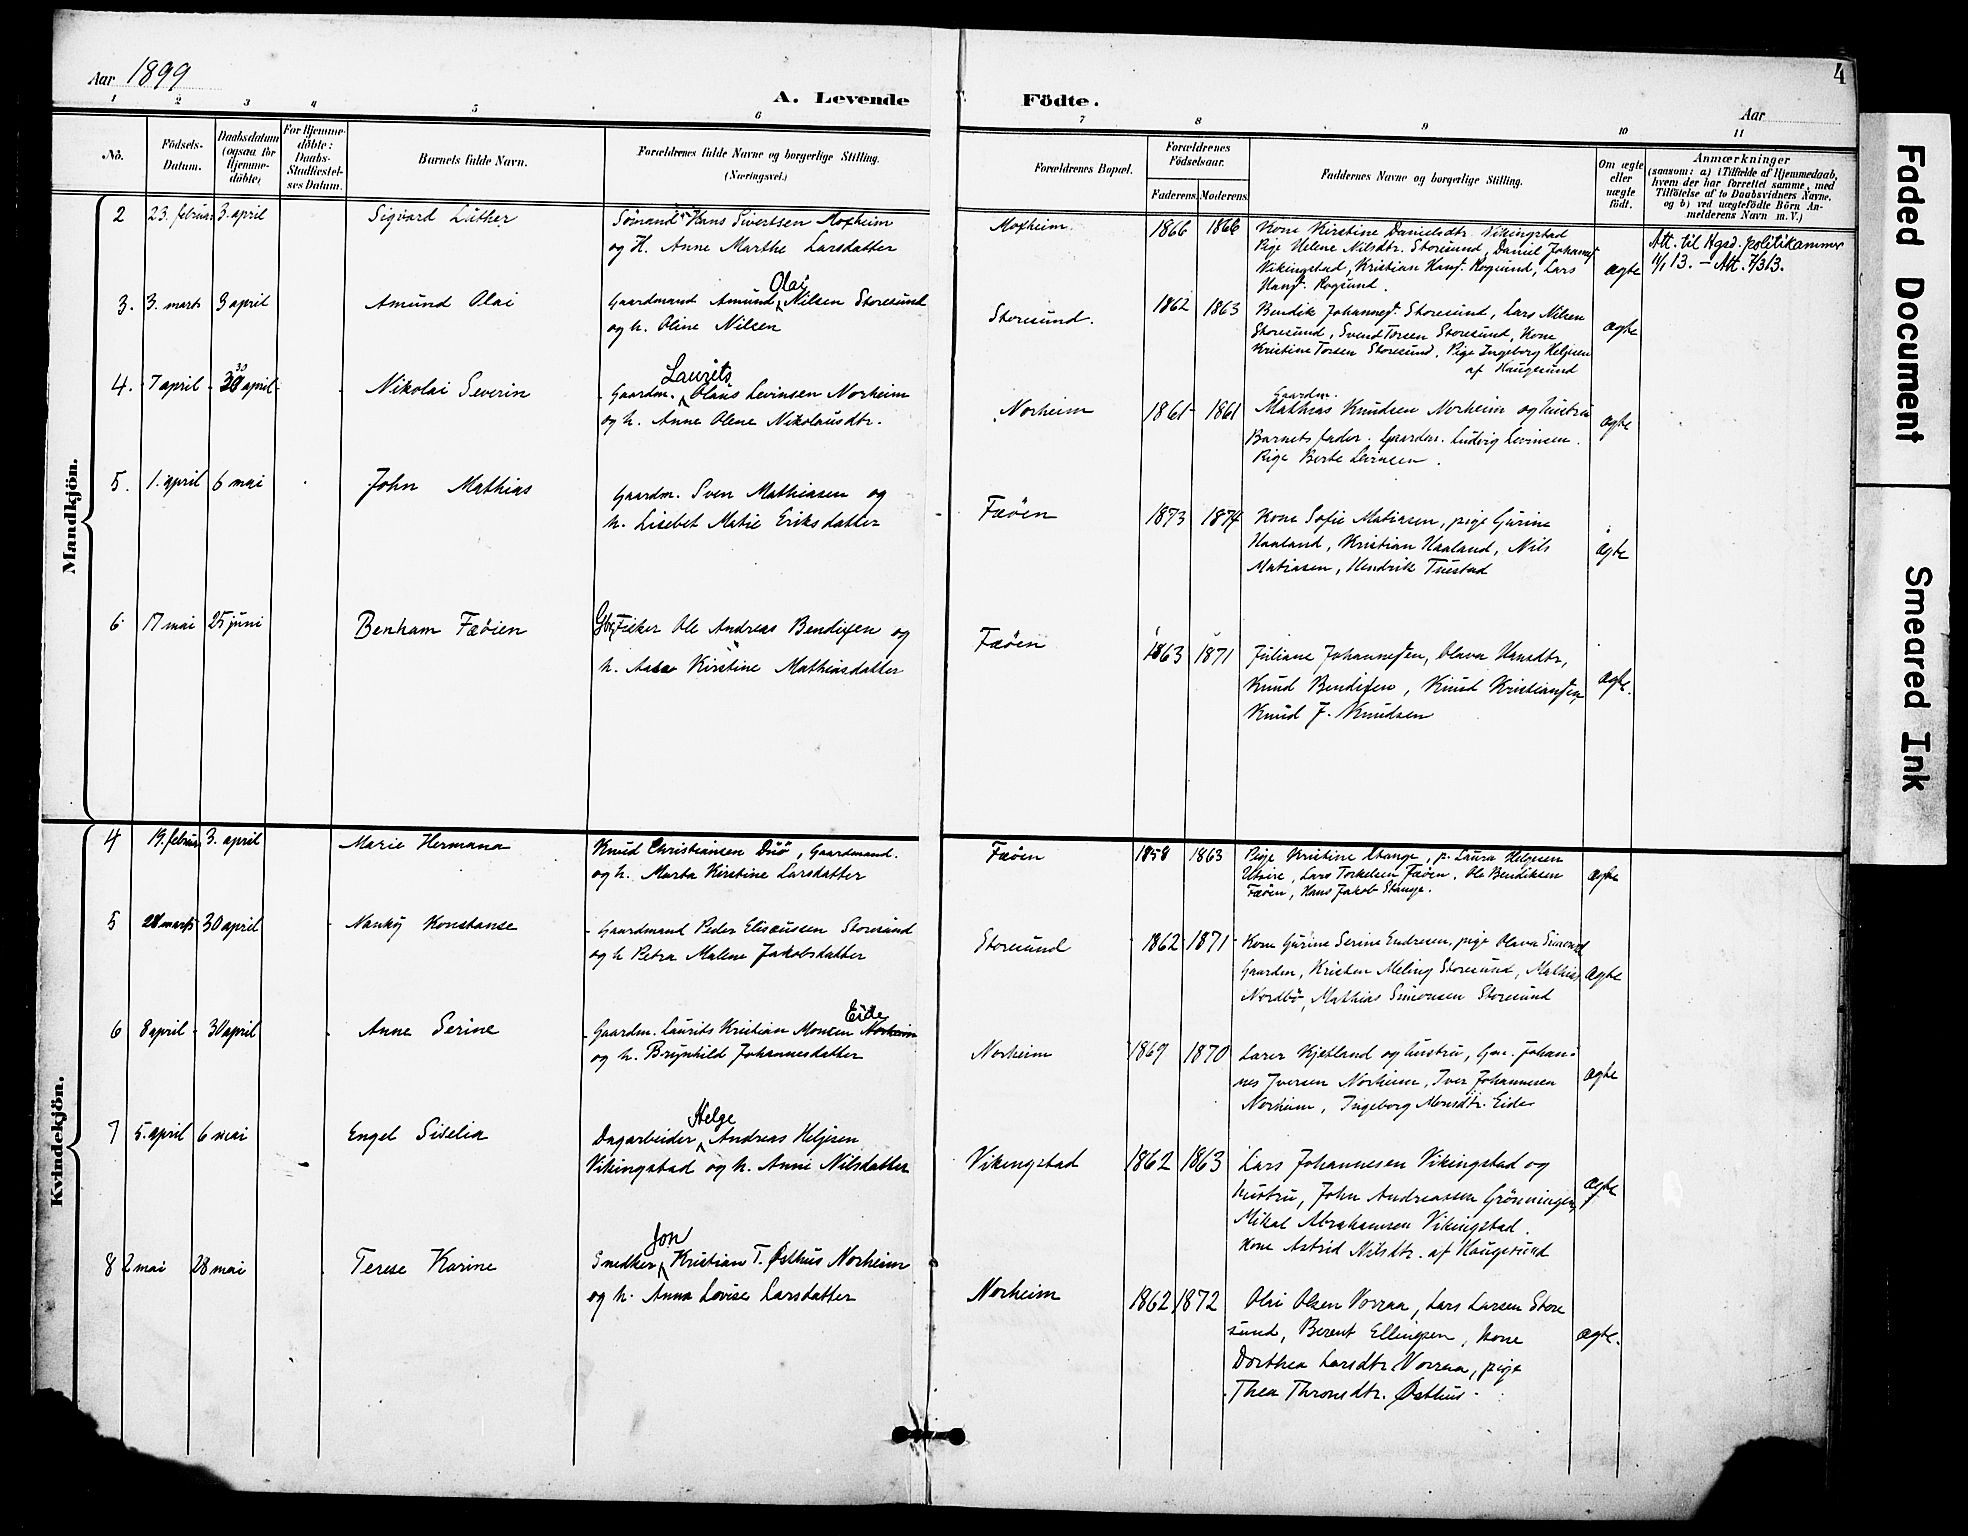 Aar 1899
A. Levende Födte.
Aar
4
1 2 3 4 5 6 7 8 9 10 11
No.
Födsels-Datum.
Daabsdatum (ogsaa for Hjemme-döbte)
For Hjemme-döbte: Daabs-Stadfæstel-ses Datum.
Barnets fulde Navn.
Forældrenes fulde Navne og borgerlige Stilling. (Næringsvei.)
Forældrenes Bopæl.
Forældrenes Födselsaar.
Faderens. Moderens.
Faddernes Navne og borgerlige Stilling.
Om ægte eller uægte födt.
Anmærkninger
(saasom: a) i Tilfælde af Hjemmedaab,
hvem der har forrettet samme, med
Tilföielse af to Daabsvidners Navne.
og b) ved uægtefödte Börn An-
melderens Navn m. V.)
Mandkjön.
2 23. februar 3. april Sigvard Luther
Sömand Hans Sivertsen Moxheim
og H. Anne Marthe Larsdatter
Moxheim. 1866 1866
Kone Kirstine Danielsdtr. Vikingstad
Pige Helene Nilsdtr. Storesund, Daniel Johans.
Vikingstad, Kristian Hans. Rogsund, Lars
Hans. Rogsund.
ægte
Att. til Hgsd. politikammer
11/1 13. – Att. 7/3 13.
3. 3. marts 3 april Amund Olai
Olai
Gaardmand Amund Nilsen Storesund
og h. Oline Nilsen
Storesund. 1862 1863
Bendik Johannes. Storesund, Lars Nilsen
Storesund, Svend Torsen Storesund, Kone
Kristine Torsen Storesund, Pige Ingeborg Heljesen
af Haugesund
ægte
4. 7 april 30 april Nikolai Severin
Laurits
Gaardm. Olaus Levinsen Norheim
og h. Anne Olene Nikolausdtr.
Norheim 1861 1861
Gaardm.
Mathias Knudsen Norheim og hustru
Barnets fader. Gaardm. Ludvig Levinsen.
Pige Berte Levinsen.
ægte
5. 1. april 6 mai John Mathias
Gaardm. Sven Mathiasen og
h. Lisebet Matie Eriksdatter
Fæöen 1873 1874
Kone Sofie Matiasen, pige Gurine
Haaland, Kristian Haaland, Nils
Matiasen, Hendrik Tuestad
ægte
6 17 mai 25 juni Benham Fæöien
Gbr, Fisker Ole Andreas Bendixen og
h. Aasa Kirstine Mathiasdatter
Fæöen 1863 1871
Juliane Johannessen, Olava Hansdtr,
Knud Bendixen, Knud Kristiansen,
Knud J. Knudsen
ægte.
Kvindekjön.
4 19. februar 3. april Marie Hermana
Knud Christiansen Duö, Gaardmand.
og h. Marta Kirstine Larsdatter
Fæöen 1858 1863
Pige Kristine Stange, p. Laura Helgesen
Utsire, Lars Torkelsen Fæöen, Ole Bendiksen
Fæöen, Hans Jakob Stange.
ægte
5 28 marts 30 april Nanky Konstanse
Gaardmand Peder Elisæussen Storesund
og h Petra Malene Jakobsdatter
Storesund 1862 1871
Kone Gurine Serine Endresen, pige Olava Simonsd
Gaarden, Kristen Meling Storesund, Mathias
Nordbö, Mathias Simonsen Storesund
ægte
6 8 april 30 april Anne Serine
Eide
Gaardm. Laurits Kristian Monsen Norheim
og h. Brynhild Johannesdatter
Norheim 1869 1870
Larer Kjetland og hustru, Gm. Johan-
nes Iversen Norheim, Iver Johannesen
Norheim, Ingeborg Monsdtr. Eide
ægte
7 5. april 6 mai Engel Siselia
Helge
Dagarbeider Andreas Heljesen
Vikingstad og h. Anne Nilsdatter
Vikingstad 1862 1863
Lars Johannesen Vikingstad og
hustru, John Andreassen Grönningen,
Mikal Abrahamsen Vikingstad.
Kone Astrid Nilsdtr. af Haugesund
ægte
8 2 mai 28 mai Terese Karine
Jon
Snedker Kristian T. Østhus Norheim
og h. Anna Lovise Larsdatter
Norheim 1862 1872
Olai Olsen Vorraa, Lars Larsen Store
sund, Berent Ellingsen, kone
Dorthea Larsdtr Vorraa, pige
Thea Thronsdtr. Østhus.
ægte.
Faded Document
Smeared Ink